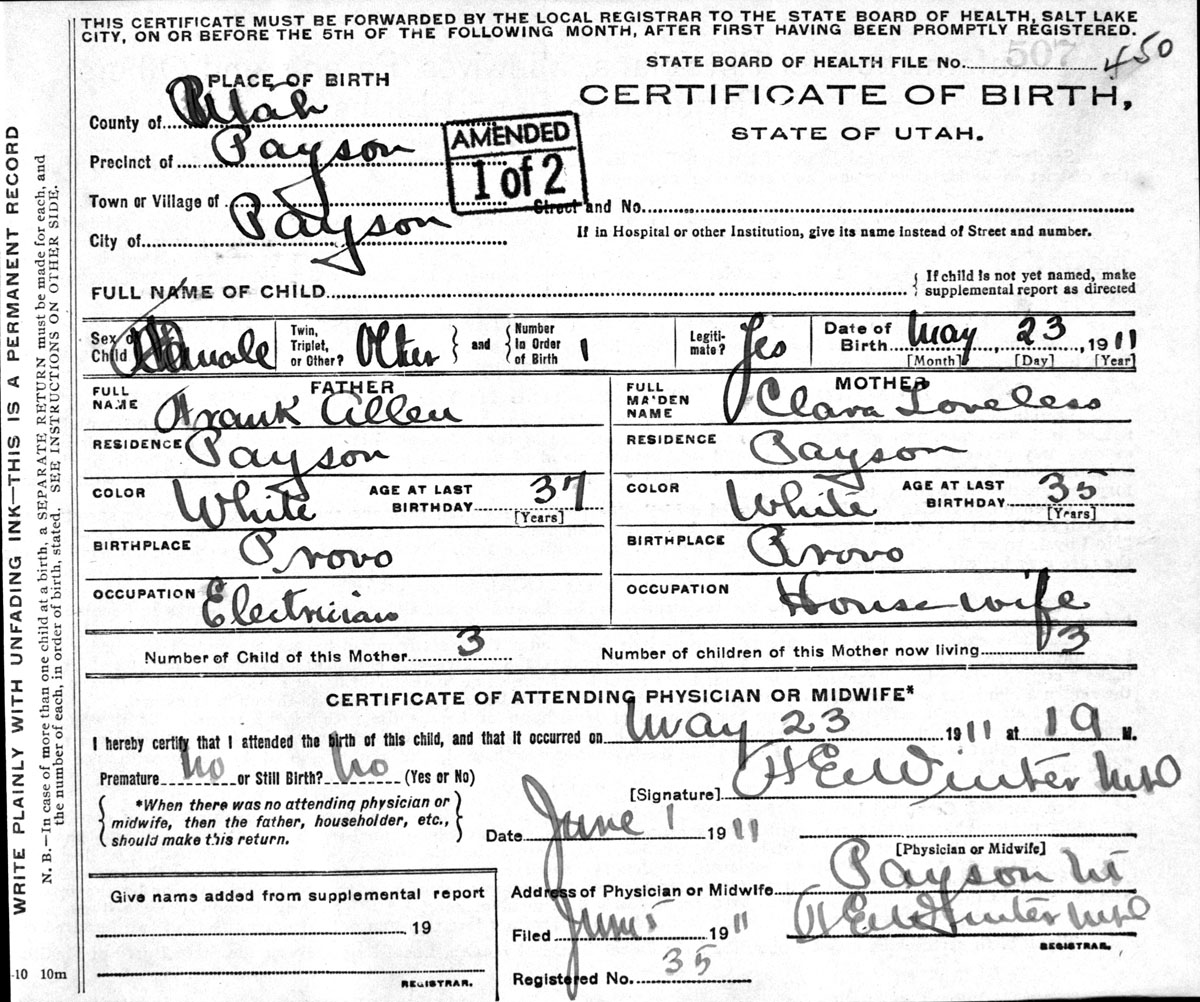 THIS CERTIFICATE MUST BE FORWARDED BY THE LOCAL REGISTRAR TO THE STATE BOARD OF HEALTH, SALT LAKE
CITY, ON OR BEFORE THE 5TH OF THE FOLLOWING MONTH, AFTER FIRST HAVING BEEN PROMPTLY REGISTERED.
STATE BOARD OF HEALTH FILE No. 507 450
PLACE OF BIRTH
CERTIFICATE OF BIRTH,
STATE OF UTAH.
County of Utah
Precinct of Payson
AMENDED
1 of 2
Town or Village of
Street and No.
City of Payson
If in Hospital or other Institution, give its name instead of Street and number.
FULL NAME OF CHILD
If child is not yet named, make
supplemental report as directed
Sex of Child Female Twin, Triplet, or Other? Other and Number In Order of Birth 1 Legitimate? Yes Date of Birth May 23, 1911
[Month] [Day] [Year]
FATHER
FULL NAME Frank Allen
MOTHER
FULL MAIDEN NAME Clara Loveless
RESIDENCE Payson
RESIDENCE Payson
COLOR White AGE AT LAST BIRTHDAY 37 [Years]
COLOR White AGE AT LAST BIRTHDAY 35 [Years]
BIRTHPLACE Provo
BIRTHPLACE Provo
OCCUPATION Electrician
OCCUPATION House wife
Number of Child of this Mother 3
Number of children of this Mother now living 3
CERTIFICATE OF ATTENDING PHYSICIAN OR MIDWIFE*
I hereby certify that I attended the birth of this child, and that it occurred on May 23 1911 at 19 M.
Premature No or Still Birth? No (Yes or No)
[Signature] H E Winter
*When there was no attending physician or
midwife, then the father, householder, etc.,
should make this return.
Date June 1 1911
[Physician or Midwife]
Address of Physician or Midwife Payson Ut
Filed June 5 1911
REGISTRAR.
Registered No. 35
Give name added from supplemental report
19
REGISTRAR.
-10 10m
WRITE PLAINLY WITH UNFADING INK—THIS IS A PERMANENT RECORD
N. B.—In case of more than one child at a birth, a SEPARATE RETURN must be made for each, and
the number of each, in order of birth, stated. SEE INSTRUCTIONS ON OTHER SIDE.